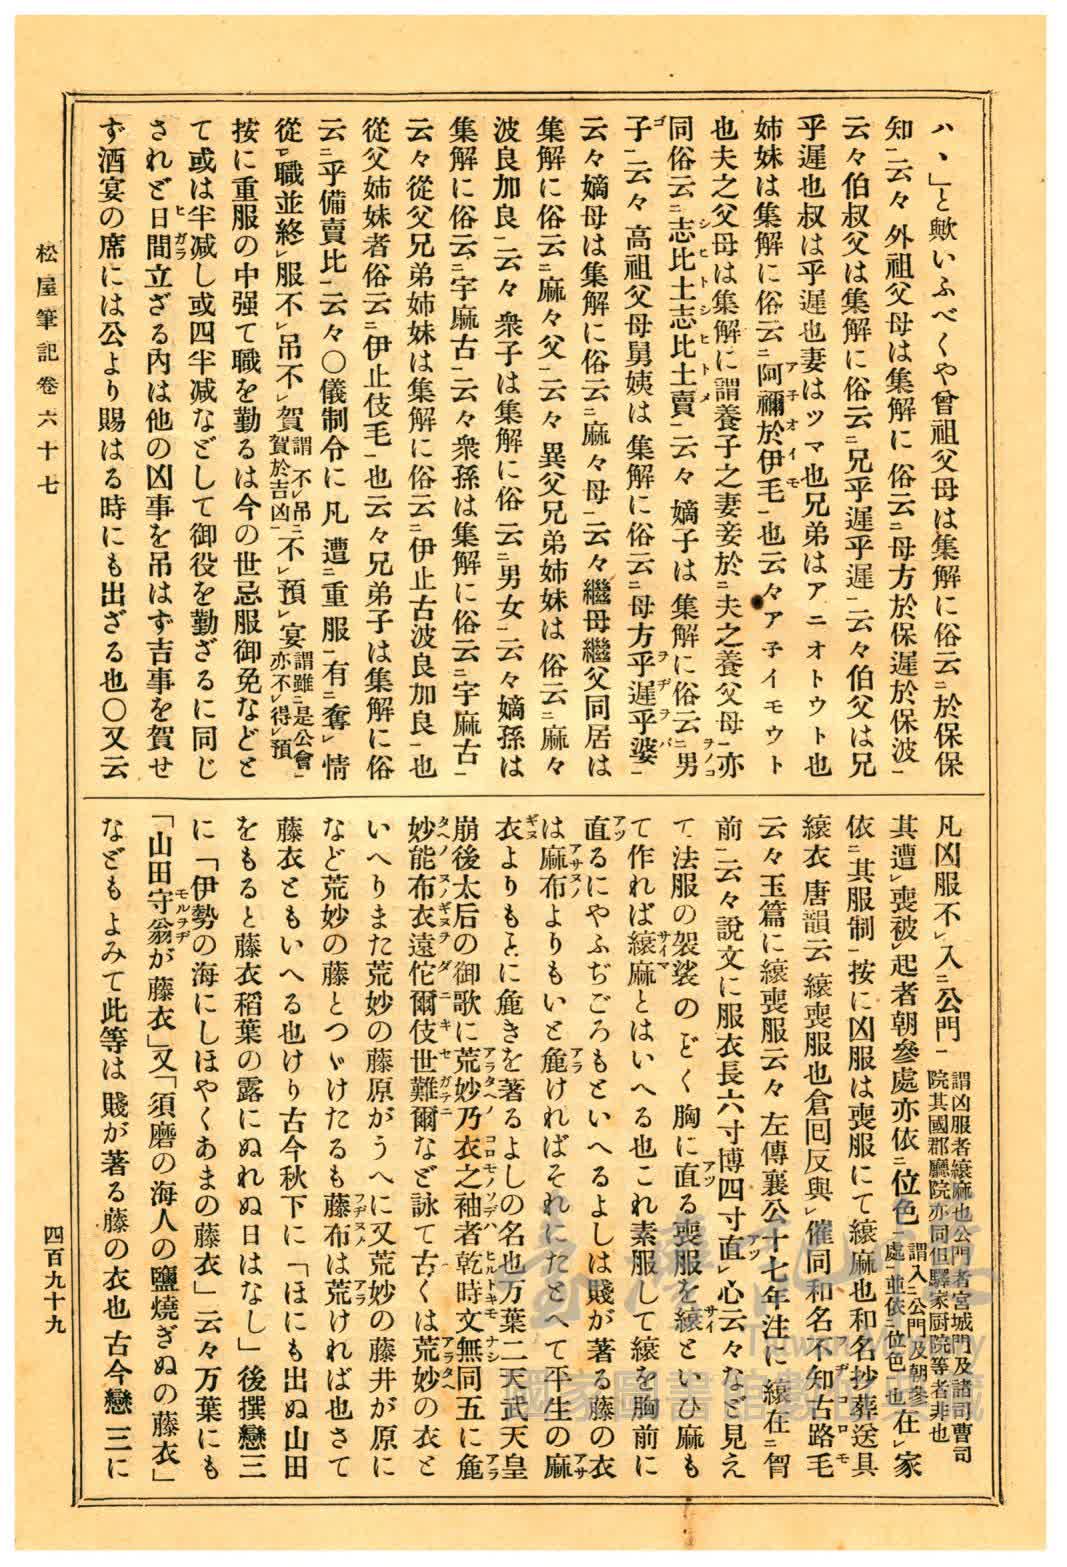 ハヽ」と歟いふべくや曾祖父母は集解に俗云ニ於保保
知一云々外祖父母は集解に俗云ニ母方於保遲於保波一
云々伯叔父は集解に俗云ニ兄乎遲乎遲一云々伯父は兄
乎遲也叔は乎遲也妻はツマ也兄弟はアニオトウト也
姉妹は集解に俗云ニ阿禰於伊毛一也云々アネイモウト
也夫之父母は集解に謂養子之妻妾於ニ夫之養父母一亦
同俗云ニ志比土志比土賣一云々嫡子は集解に俗云ニ男
子一云々高祖父母舅姨は集解に俗云ニ母方乎遲乎婆一
云々嫡母は集解に俗云ニ麻々母一云々繼母繼父同居は
集解に俗云ニ麻々父一云々異父兄弟姉妹は俗云ニ麻々
波良加良一云々衆子は集解に俗云ニ男女一云々嫡孫は
集解に俗云ニ宇麻古一云々衆孫は集解に俗云ニ宇麻古一
云々從父兄弟姉妹は集解に俗云ニ伊止古波良加良一也
從父姉妹者俗云ニ伊止伎毛一也云々兄弟子は集解に俗
云ニ乎備賣比一云々〇儀制令に凡遭ニ重服一有ニ奪レ情
從ロ職並終レ服不レ吊不レ賀謂不レ吊ニ賀於吉凶一不レ預レ宴謂雖ニ是公會一亦不レ得レ預
按に重服の中强て職を勤るは今の世忌服御免などと
て或は半减し或四半减などして御役を勤ざるに同じ
されど日間立ざる內は他の凶事を吊はず吉事を賀せ
ず酒宴の席には公より賜はる時にも出ざる也〇又云
凡凶服不レ入ニ公門一謂凶服者縗麻也公門者宮城門及諸司曹司院其國郡廳院亦同但驛家厨院等者非也
其遭レ喪被レ起者朝參處亦依ニ位色一謂入ニ公門一及朝參處一並依ニ位色一也在レ家
依ニ其服制一按に凶服は喪服にて縗麻也和名抄葬送具
縗衣唐韻云縗喪服也倉回反與レ催同和名不知古路毛
云々玉篇に縗喪服云々左傳襄公十七年注に縗在ニ胷
前一云々說文に服衣長六寸博四寸直レ心云々など見え
て法服の袈裟のごとく胸に直る喪服を縗といひ麻も
て作れば縗麻とはいへる也これ素服して縗を胸前に
直るにやふぢごろもといへるよしは賤が著る藤の衣
は麻布よりもいと麁ければそれにたとへて平生の麻
衣よりもことに麁きを著るよしの名也万葉二天武天皇
崩後太后の御歌に荒妙乃衣之袖者乾時文無同五に麁
妙能布衣遠佗爾伎世難爾など詠て古くは荒妙の衣と
いへりまた荒妙の藤原がうへに又荒妙の藤井が原に
など荒妙の藤とつゞけたるも藤布は荒ければ也さて
藤衣ともいへる也けり古今秋下に「ほにも出ぬ山田
をもると藤衣稻葉の露にぬれぬ日はなし」後撰戀三
に「伊勢の海にしほやくあまの藤衣」云々万葉にも
「山田守翁が藤衣」又「須磨の海人の鹽燒ぎぬの藤衣」
などもよみて此等は賤が著る藤の衣也古今戀三に
松屋筆記卷六十七
四百九十九
Taiwan Memory
國家圖書館數位典藏